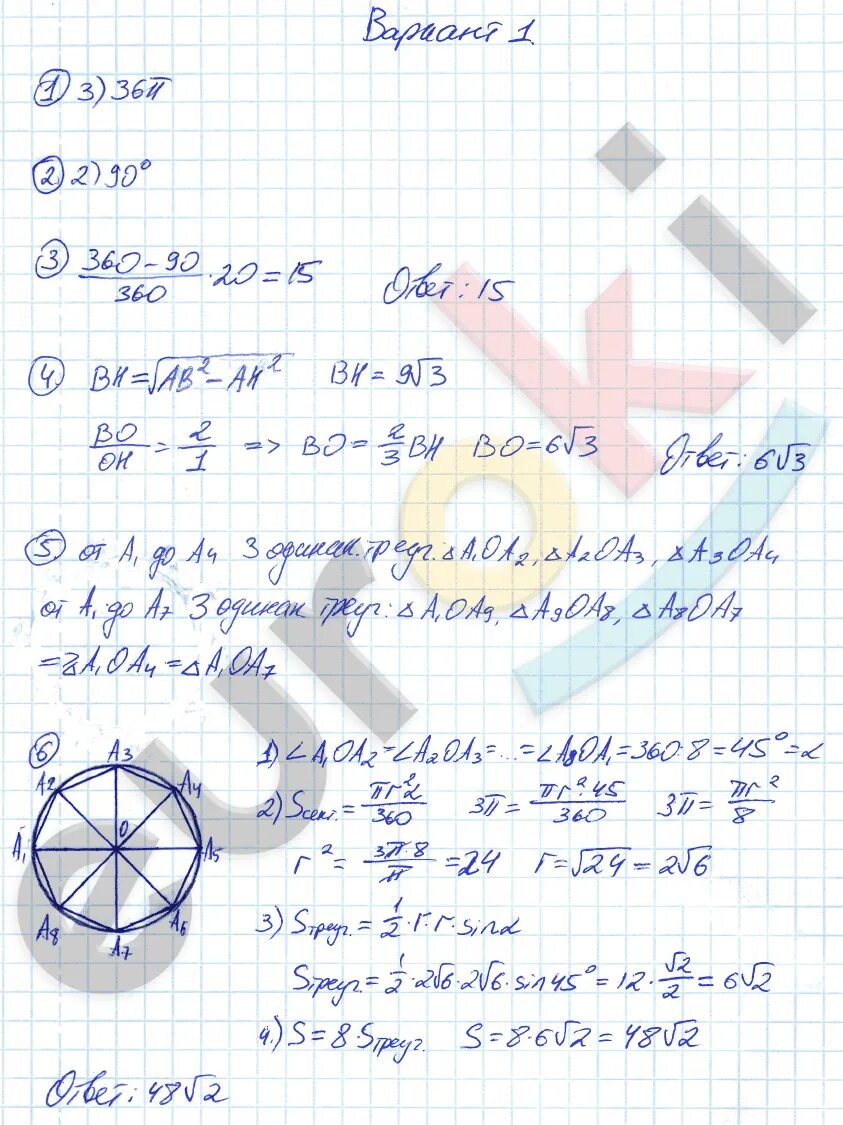 Вариант 1
① 3) 36π
② 2) 90°
③ (360 − 90)/360 · 20 = 15 Ответ: 15
④ BH = √(AB² − AH²) BH = 9√3
BO/OH = 2/1 => BO = 2/3 BH BO = 6√3 Ответ: 6√3
⑤ от A₁ до A₄ 3 одинак. треуг. △A₁OA₂, △A₂OA₃, △A₃OA₄
от A₁ до A₇ 3 одинак треуг: △A₁OA₉, △A₉OA₈, △A₈OA₇
= △A₁OA₄ = △A₁OA₇
⑥ 1) ∠A₁OA₂ = ∠A₂OA₃ = ... = ∠A₈OA₁ = 360:8 = 45° = α
2) Sсект. = πr²α/360 3π = πr²·45/360 3π = πr²/8
r² = 3π·8/π = 24 r = √24 = 2√6
3) Sтреуг. = 1/2 · r · r · sinα
Sтреуг. = 1/2 · 2√6 · 2√6 · sin45° = 12 · √2/2 = 6√2
4.) S = 8 · Sтреуг. S = 8 · 6√2 = 48√2
A1
A2
A3
A4
A5
A6
A7
A8
O
Ответ: 48√2
euroki